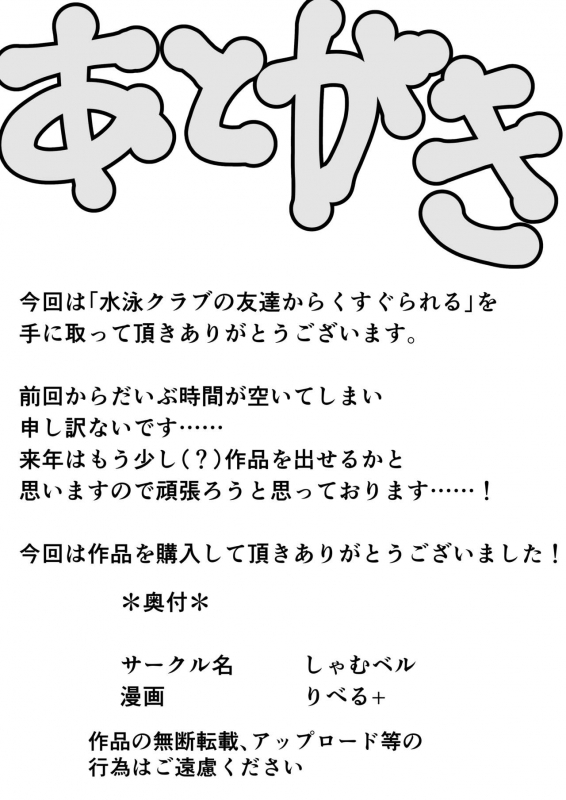 あとがき
今回は「水泳クラブの友達からくすぐられる」を
手に取って頂きありがとうございます。
前回からだいぶ時間が空いてしまい
申し訳ないです……
来年はもう少し(？)作品を出せるかと
思いますので頑張ろうと思っております……！
今回は作品を購入して頂きありがとうございました！
＊奥付＊
サークル名 しゃむベル
漫画 りべる+
作品の無断転載、アップロード等の
行為はご遠慮ください